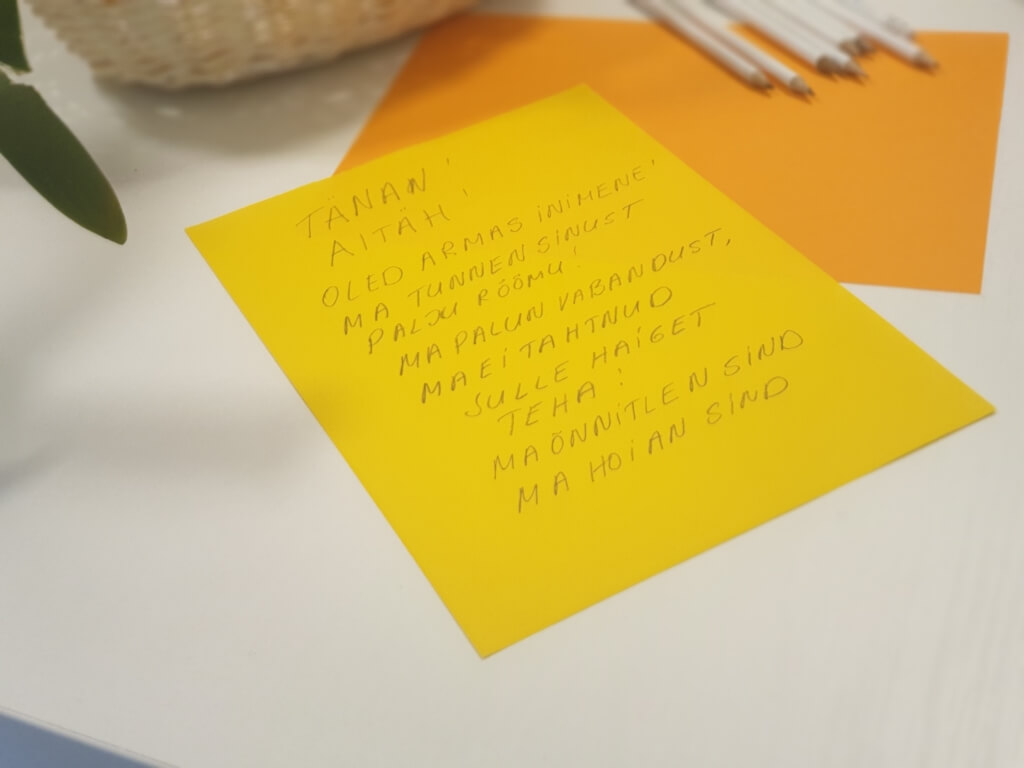 TÄNAN!
AITÄH!
OLED ARMAS INIMENE!
MA TUNNEN SINUST
PALJU RÕÕMU!
MA PALUN VABANDUST,
MA EI TAHTNUD
SULLE HAIGET
TEHA!
MA ÕNNITLEN SIND
MA HOIAN SIND